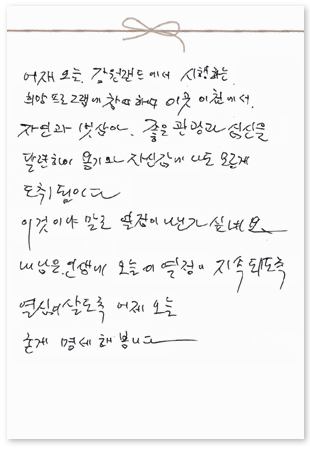 어제 오늘, 강원랜드에서 시행하는,
희망 프로그램에 참여하여 이곳 이천에서,
자연과 벗삼아, 좋은 관광과 심신을
달련하여 용기와 자신감에 나도 모르게
도취됨이다
이것이야 말로 열정이 아닌가 싶네요
내 남은 인생에 오늘의 열정이 지속되도록
열심히 살도록 어제 오늘
굳게 명세해 봅니다